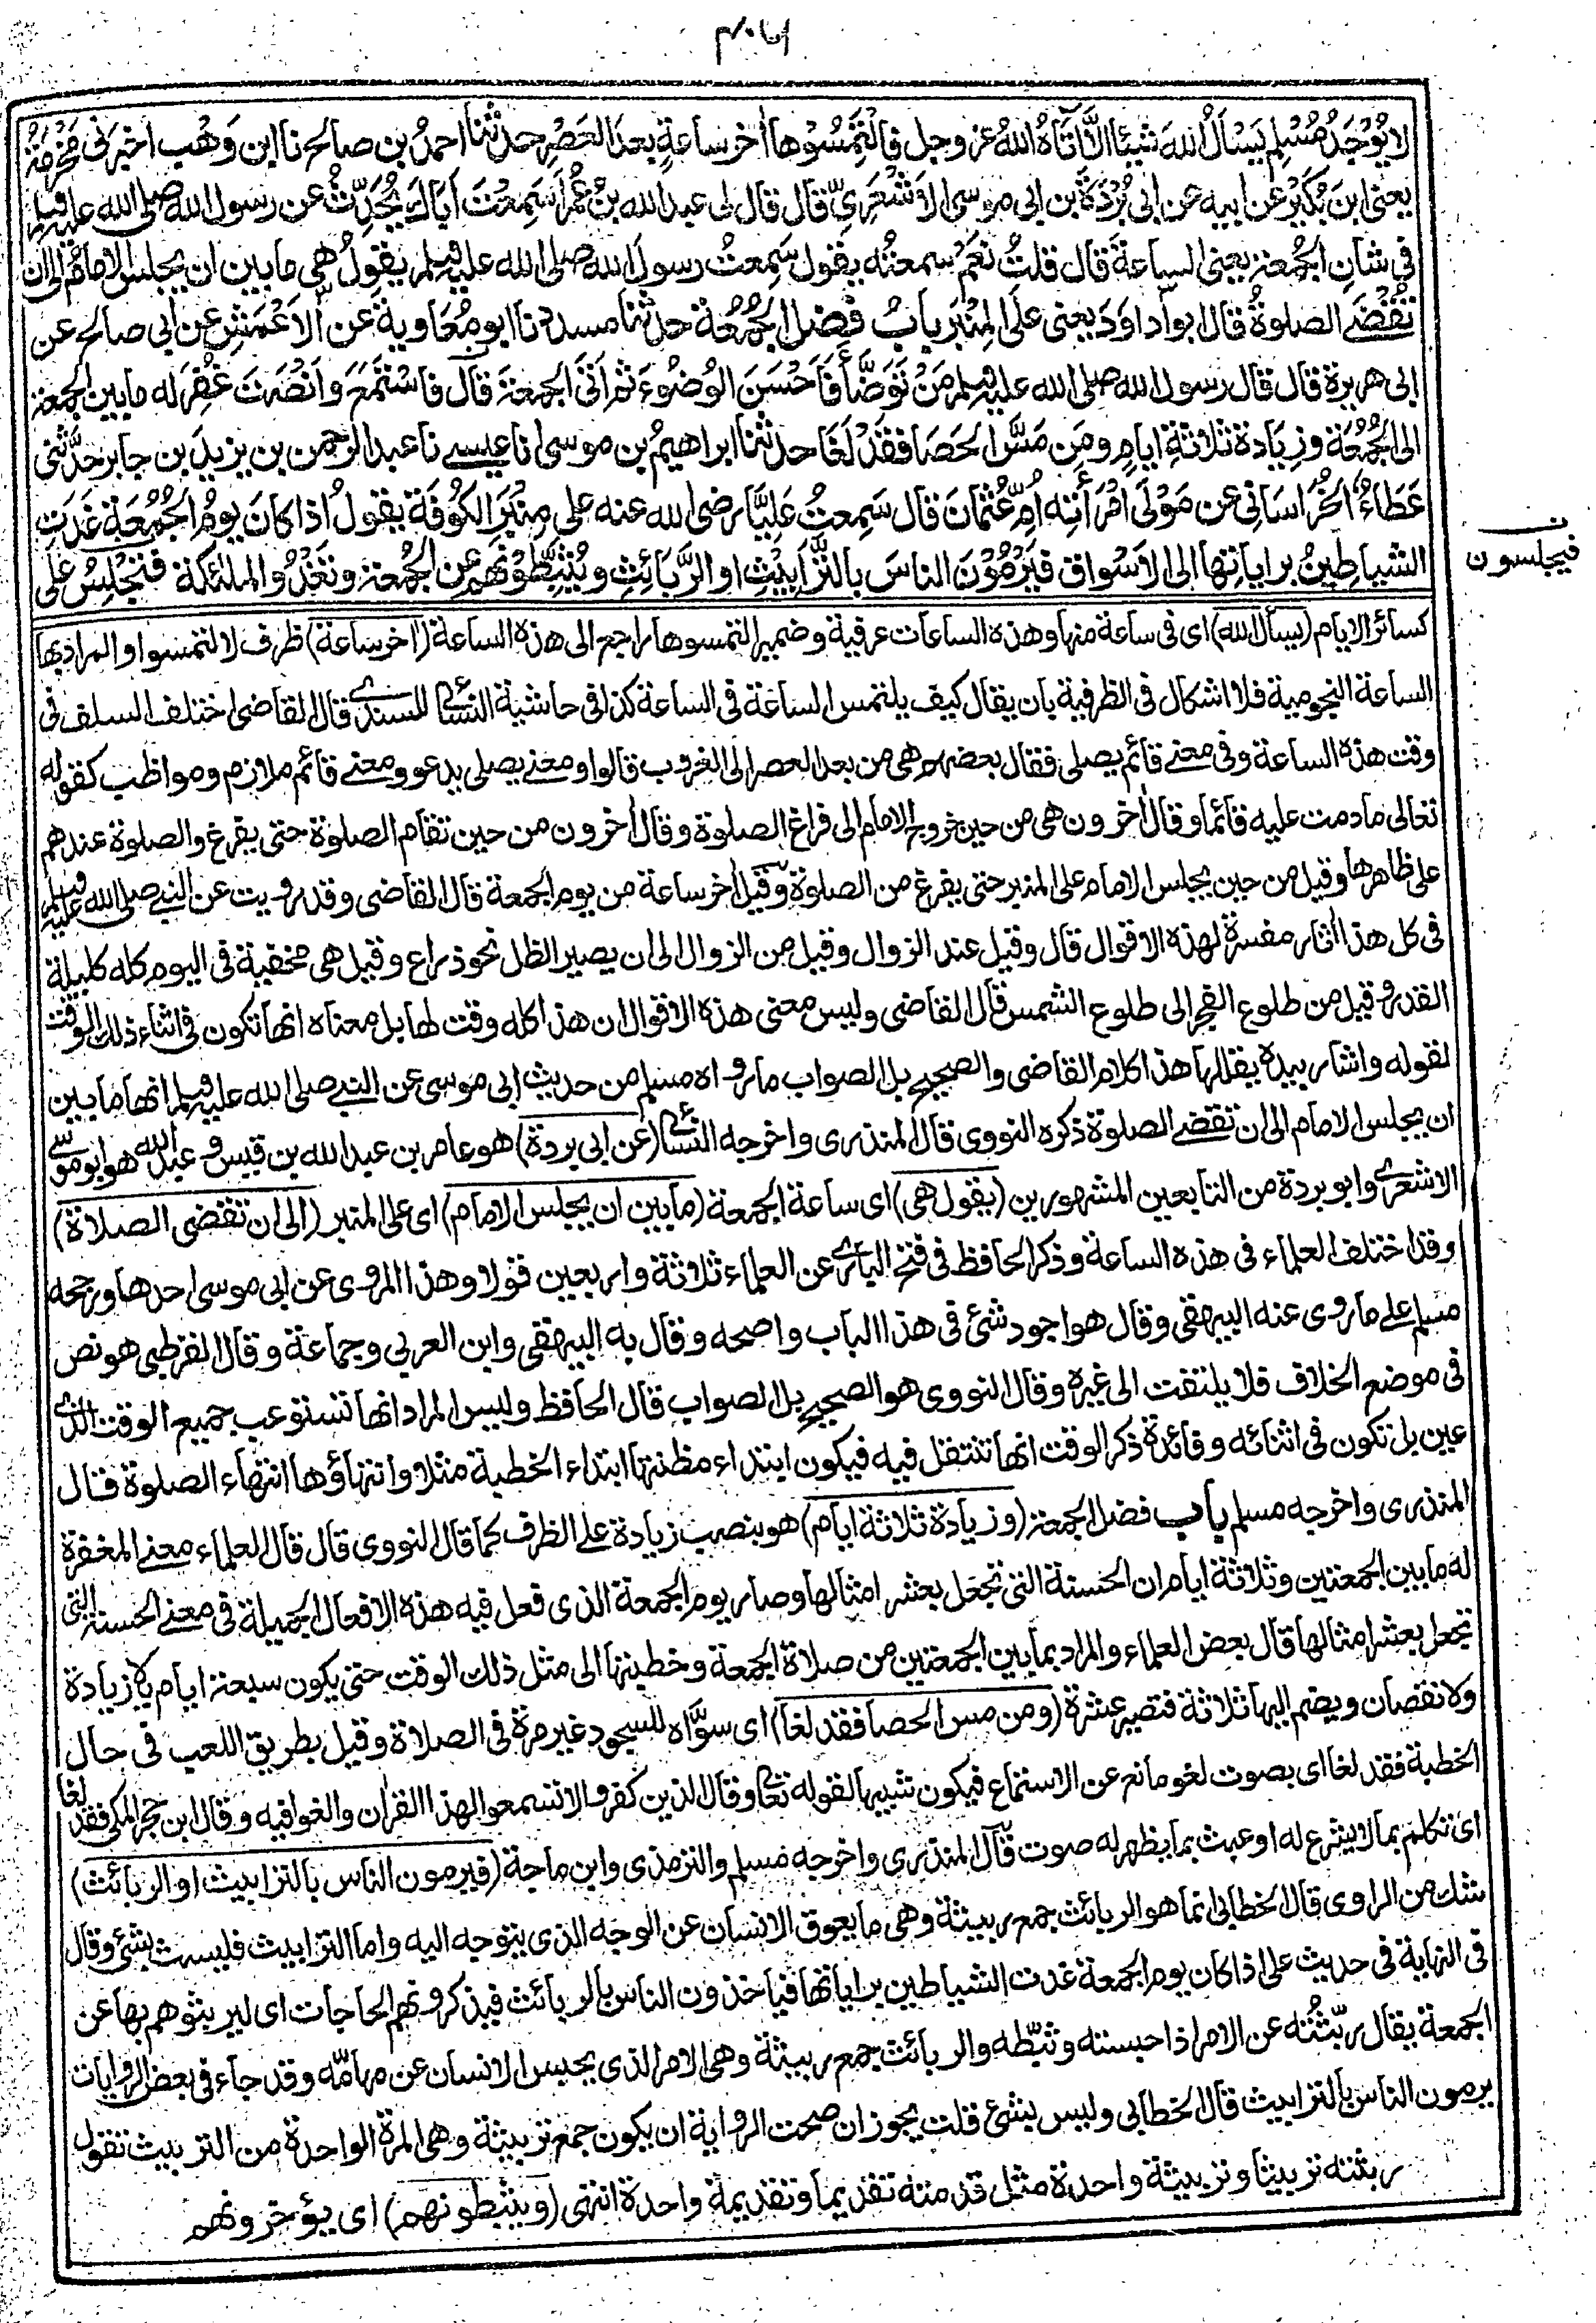 ٤٠٦
لا يُوْجَدُ مُسْلِم يَسْاَلُ اللهَ شيئا الَّا اٰتَاهُ اللهُ عز وجل فَالْتَمِسُوْها اٰخر ساعةٍ بعد العَصْرِ حدثنا احمدُ بن صالح نا ابن وَهْب اخبرنى مَخْرَمَةُ
يعنى ابنَ بُكَيْر عن ابيه عن ابى بُرْدَةَ بن ابى موسى الاَشْعَرِىِّ قال قال لى عبد الله بنُ عُمَرَ اَسَمِعْتَ اَبَاكَ يُحَدِّثُ عن رسول الله صلى الله عليه وسلم
فى شانِ الجُمُعَةِ يعنى الساعةَ قال قلتُ نَعَمْ سمعتُه يقول سَمِعتُ رسولَ الله صلى الله عليه وسلم يقولُ هى ما بين ان يجلسَ الامامُ الى ان
تُقْضَے الصلوةُ قال ابو داودَ يعنى على المِنْبَرِ بابُ فَضْلِ الجُمُعَة حدثنا مسدد نا ابو مُعَاوية عن الاَعْمَشِ عن ابى صالح عن
ابى هريرة قال قال رسول الله صلى الله عليه وسلم مَنْ تَوَضَّأَ فَاَحْسَنَ الوُضُوْءَ ثم اَتَى الجمعةَ قال فَاسْتَمَعَ وَاَنْصَتَ غُفِرَ له ما بين الجمعة
الى الجُمُعَة وزِيَادة ثلاثةِ ايامٍ ومَن مَسَّ الحَصَا فَقَدْ لَغَا حدثنا ابراهيمُ بن موسى انا عيسے نا عبد الرحمن بن يزيدَ بن جابر حدَّثَنى
عَطَاءٌ الخُرَاسَانى عن مَوْلَى امْرَأَتِه اُمِّ عُثْمَانَ قال سَمِعتُ عَلِيًّا رضى الله عنه على مِنْبَرِ الكُوفَة يقولُ اذا كان يومُ الجُمُعَة غَدَتِ
الشياطِينُ براياتِها الى الاَسْواقِ فيَرْمُوْنَ الناسَ بالتَّرَابِيْثِ او الرَّبَائِثِ ويُثَبِّطُوْنَهم عن الجُمعة وتَغْدُو الملئكة فتَجْلِسُ على
فيجلسون
كسائر الايام (يسأل الله) اى فى ساعة منها وهذه الساعات عرفية وضمير التمسوها راجع الى هذه الساعة (اخر ساعة) ظرف لالتمسوا والمراد بها
الساعة النجومية فلا اشكال فى الظرفية بان يقال كيف يلتمس الساعة فى الساعة كذا فى حاشية النسائى للسندے قال القاضى اختلف السلف فى
وقت هذه الساعة وفى معنے قائم يصلى فقال بعضهم هى من بعد العصر الى الغروب قالوا ومعنے يصلى يدعو ومعنے قائم ملازم ومواظب كقوله
تعالى ما دمت عليه قائما وقال اٰخرون هى من حين خروج الامام الى فراغ الصلوة وقال اٰخرون من حين تقام الصلوة حتى يفرغ والصلوة عندهم
على ظاهرها وقيل من حين يجلس الامام على المنبر حتى يفرغ من الصلوة وقيل اٰخر ساعة من يوم الجمعة قال القاضى وقد رويت عن النبى صلى الله عليه وسلم
فى كل هذا اٰثار مفسرة لهذه الاقوال قال وقيل عند الزوال وقيل من الزوال الى ان يصير الظل نحو ذراع وقيل هى مخفية فى اليوم كله كليلة
القدر وقيل من طلوع الفجر الى طلوع الشمس قال القاضى وليس معنى هذه الاقوال ان هذا كله وقت لها بل معناه انها تكون فى اثناء ذلك الوقت
لقوله واشار بيده يقللها هذا كلام القاضى والصحيح بل الصواب ما رواه مسلم من حديث ابى موسى عن النبى صلى الله عليه وسلم انها ما بين
ان يجلس الامام الى ان تقضے الصلوة ذكره النووى قال المنذرى واخرجه النسائى (عن ابى بردة) هو عامر بن عبد الله بن قيس وعبد الله هو ابو موسے
الاشعرے وابو بردة من التابعين المشهورين (يقول هى) اى ساعة الجمعة (ما بين ان يجلس الامام) اى على المنبر (الى ان تقضى الصلاة)
وقد اختلف العلماء فى هذه الساعة وذكر الحافظ فى فتح البارے عن العلماء ثلاثة واربعين قولا وهذا المروى عن ابى موسى احدها ورجحه
مسلم على ما روى عنه البيهقى وقال هو اجود شئ فى هذا الباب واصحه وقال به البيهقى وابن العربى وجماعة وقال القرطبى هو نص
فى موضع الخلاف فلا يلتفت الى غيره وقال النووى هو الصحيح بل الصواب قال الحافظ وليس المراد انها تستوعب جميع الوقت الذے
عين بل تكون فى اثنائه وفائدة ذكر الوقت انها تنتقل فيه فيكون ابتداء مظنتها ابتداء الخطبة مثلا وانتهاؤها انتهاء الصلوة قال
المنذرى واخرجه مسلم باب فضل الجمعة (وزيادة ثلاثة ايام) هو بنصب زيادة على الظرف كما قال النووى قال قال العلماء معنے المغفرة
له ما بين الجمعتين وثلاثة ايام ان الحسنة التى تجعل بعشر امثالها وصار يوم الجمعة الذى فعل فيه هذه الافعال الجميلة فى معنے الحسنة التى
تجعل بعشر امثالها قال بعض العلماء والمراد بما بين الجمعتين من صلاة الجمعة وخطبتها الى مثل ذلك الوقت حتى يكون سبعة ايام بلا زيادة
ولا نقصان ويضم اليها ثلاثة فتصير عشرة (ومن مس الحصا فقد لغا) اى سوَّاه للسجود غير مرة فى الصلاة وقيل بطريق اللعب فى حال
الخطبة فقد لغا اى بصوت لغو مانع عن الاستماع فيكون شبيها لقوله تعالى وقال الذين كفروا لا تسمعوا لهذا القراٰن والغوا فيه وقال ابن حجر المكى فقد لغا
اى تكلم بما لا يشرع له او عبث بما يظهر له صوت قال المنذرى واخرجه مسلم والترمذى وابن ماجة (فيرمون الناس بالترابيث او الربائث)
شك من الراوى قال الخطابى انما هو الربائث جمع ربيثة وهى ما يعوق الانسان عن الوجه الذى يتوجه اليه واما الترابيث فليست بشئ وقال
فى النهاية فى حديث على اذا كان يوم الجمعة غدت الشياطين براياتها فياخذون الناس بالربائث فيذكرونهم الحاجات اى ليربثوهم بها عن
الجمعة يقال ربّثتُه عن الامر اذا حبسته وثبّطه والربائث جمع ربيثة وهى الامر الذى يحبس الانسان عن مهامّه وقد جاء فى بعض الروايات
يرمون الناس بالترابيث قال الخطابى وليس بشئ قلت يجوز ان صحت الرواية ان يكون جمع تربيثة وهى المرة الواحدة من التربيث تقول
ربثته تربيثا وتربيثة واحدة مثل قدمته تقديما وتقديمة واحدة انتهى (ويثبطونهم) اى يؤخرونهم